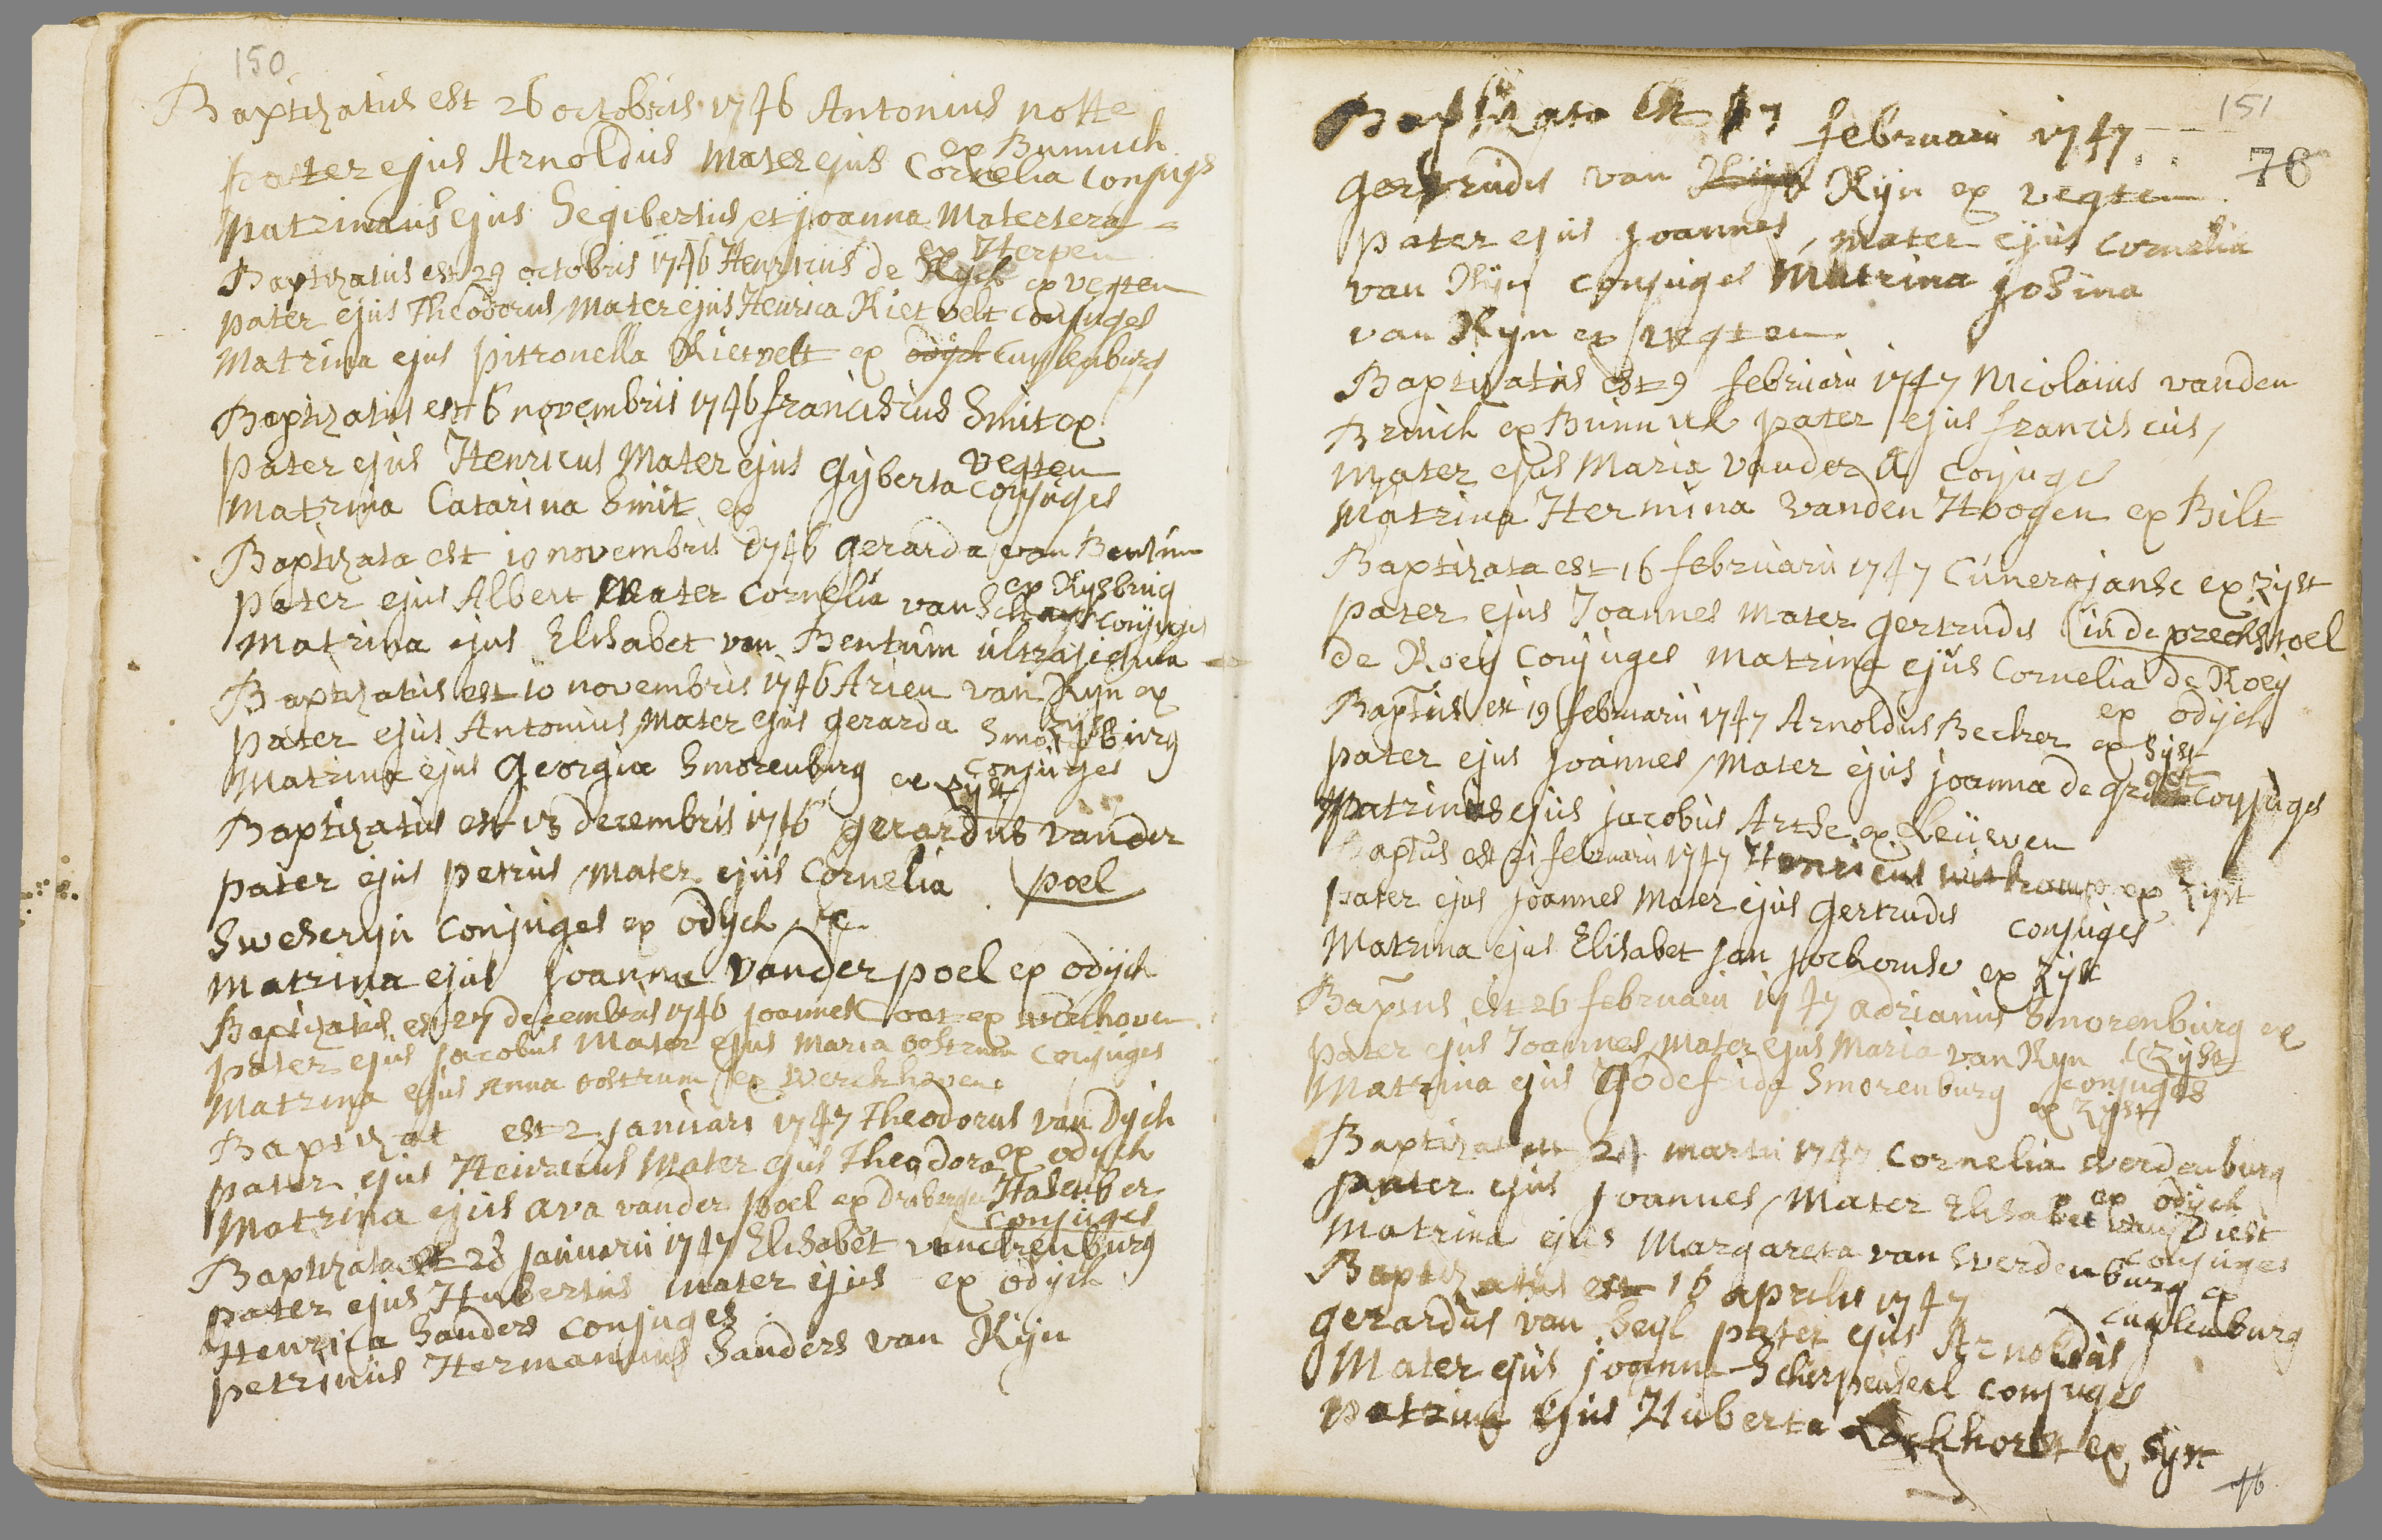 150
Baptizatus est 26 octobris 1746 Antonius notte
ex Bunnick
pater ejus Arnoldus Mater ejus Cornelia conjugs
patrinus ejus Segibertus et joanna Matertera
ex Herpen
Baptizatus est 29 octobris 1746 Henricus de Ryck ex vegten
pater ejus Theodorus Mater ejus Henrica Riet velt conjuges
Matrina ejus pitronella Rietvelt ex odijck Cuylenburg
Baptizatus est 6 novembris 1746 franciscus Smit ex
vegten
pater ejus Henricus Mater ejus Gijberta conjuges
Matrina Catarina Smit ex
Baptizata est 10 novembris 1746 gerarda van Bentum
ex Rysbrug
pater ejus Albert Mater Cornelia van Schayk conjuges
Matrina ejus Elisabet van Bentum ultrajectum
Baptizatus est 10 novembris 1746 Arien van Ryn ex
Zijst
pater ejus Antonius Mater ejus gerarda Smorenburg
conjuges
Matrina ejus Georgia Smorenburg ex zijst
Baptizatus est 13 decembris 1746 gerardus vander
poel
pater ejus petrus Mater ejus Cornelia
Sweseryn conjuges ex odijck
Matrina ejus joanna vander poel ex odijck
Baptizatus est 27 decembris 1746 joannes Coot ex wirckhoven
pater ejus jacobus Mater ejus Maria oostrum conjuges
Matrina ejus Anna oostrum ex Werckhoven
Baptizat est 2 januari 1747 Theodorus van Dijck
ex odijck
pater ejus Henricus Mater ejus Theodora Hasenber
Matrina ejus ava vander poel ex Dribergen conjuges
Baptizata est 28 januarii 1747 Elisabet vanckrenburg
pater ejus Hubertus Mater ejus ex odijck
Henrica Sanders conjuges
petrinus Hermannus Sanders van Rijn
151
76
Baptizata est 7 februarii 1747
gertrudis van Rijn ex vegten
pater ejus joannes, mater ejus cornelia
van Rijn conjuges Matrina josina
van Rijn ex vegten
Baptizatus est 9 februarii 1747 Nicolaius vanden
Brinck ex Bunnick pater ejus franciscus,
Mater ejus Maria vander A conjuges
Matrina Hermina vanden Hoogen ex Bilt
Baptizata est 16 februarii 1747 Cunera janse ex zijst
pater ejus Joannes Mater gertrudis in de preekstoel
de Roeij conjuges Matrina ejus Cornelia de Roeij
ex odijck
Baptus est 19 februarii 1747 Arnoldus Becker ex Sijst
pater ejus joannes, Mater ejus joanna de groot conjuges
patrinus ejus jacobus Artse ex Leuwen
Baptus est 21 februarii 1747 Henricus witkamp ex Zijst
pater ejus joannes Mater ejus Gertrudis conjuges
Matrina ejus Elisabet jan jochomse ex Zijst
Baptus est 26 februarii 1747 adrianus Smorenburg ex
Zijst
pater ejus Joannes Mater ejus Maria van Ryn
conjuges
Matrina ejus Godefrida Smorenburg ex Zijst
Baptizat est 24 martii 1747 Cornelia Swerdenburg
ex odijck
pater ejus joannes, Mater Elisabet van Diest
conjuges
Matrina ejus Margareta van Swerdenburg ex
Cuylenburg
Baptizatus est 16 aprilis 1747
gerardus van Segl pater ejus Arnoldus
Mater ejus joanna Scherpenseel conjuges
patrina ejus Huberta Lockhorst ex Syst